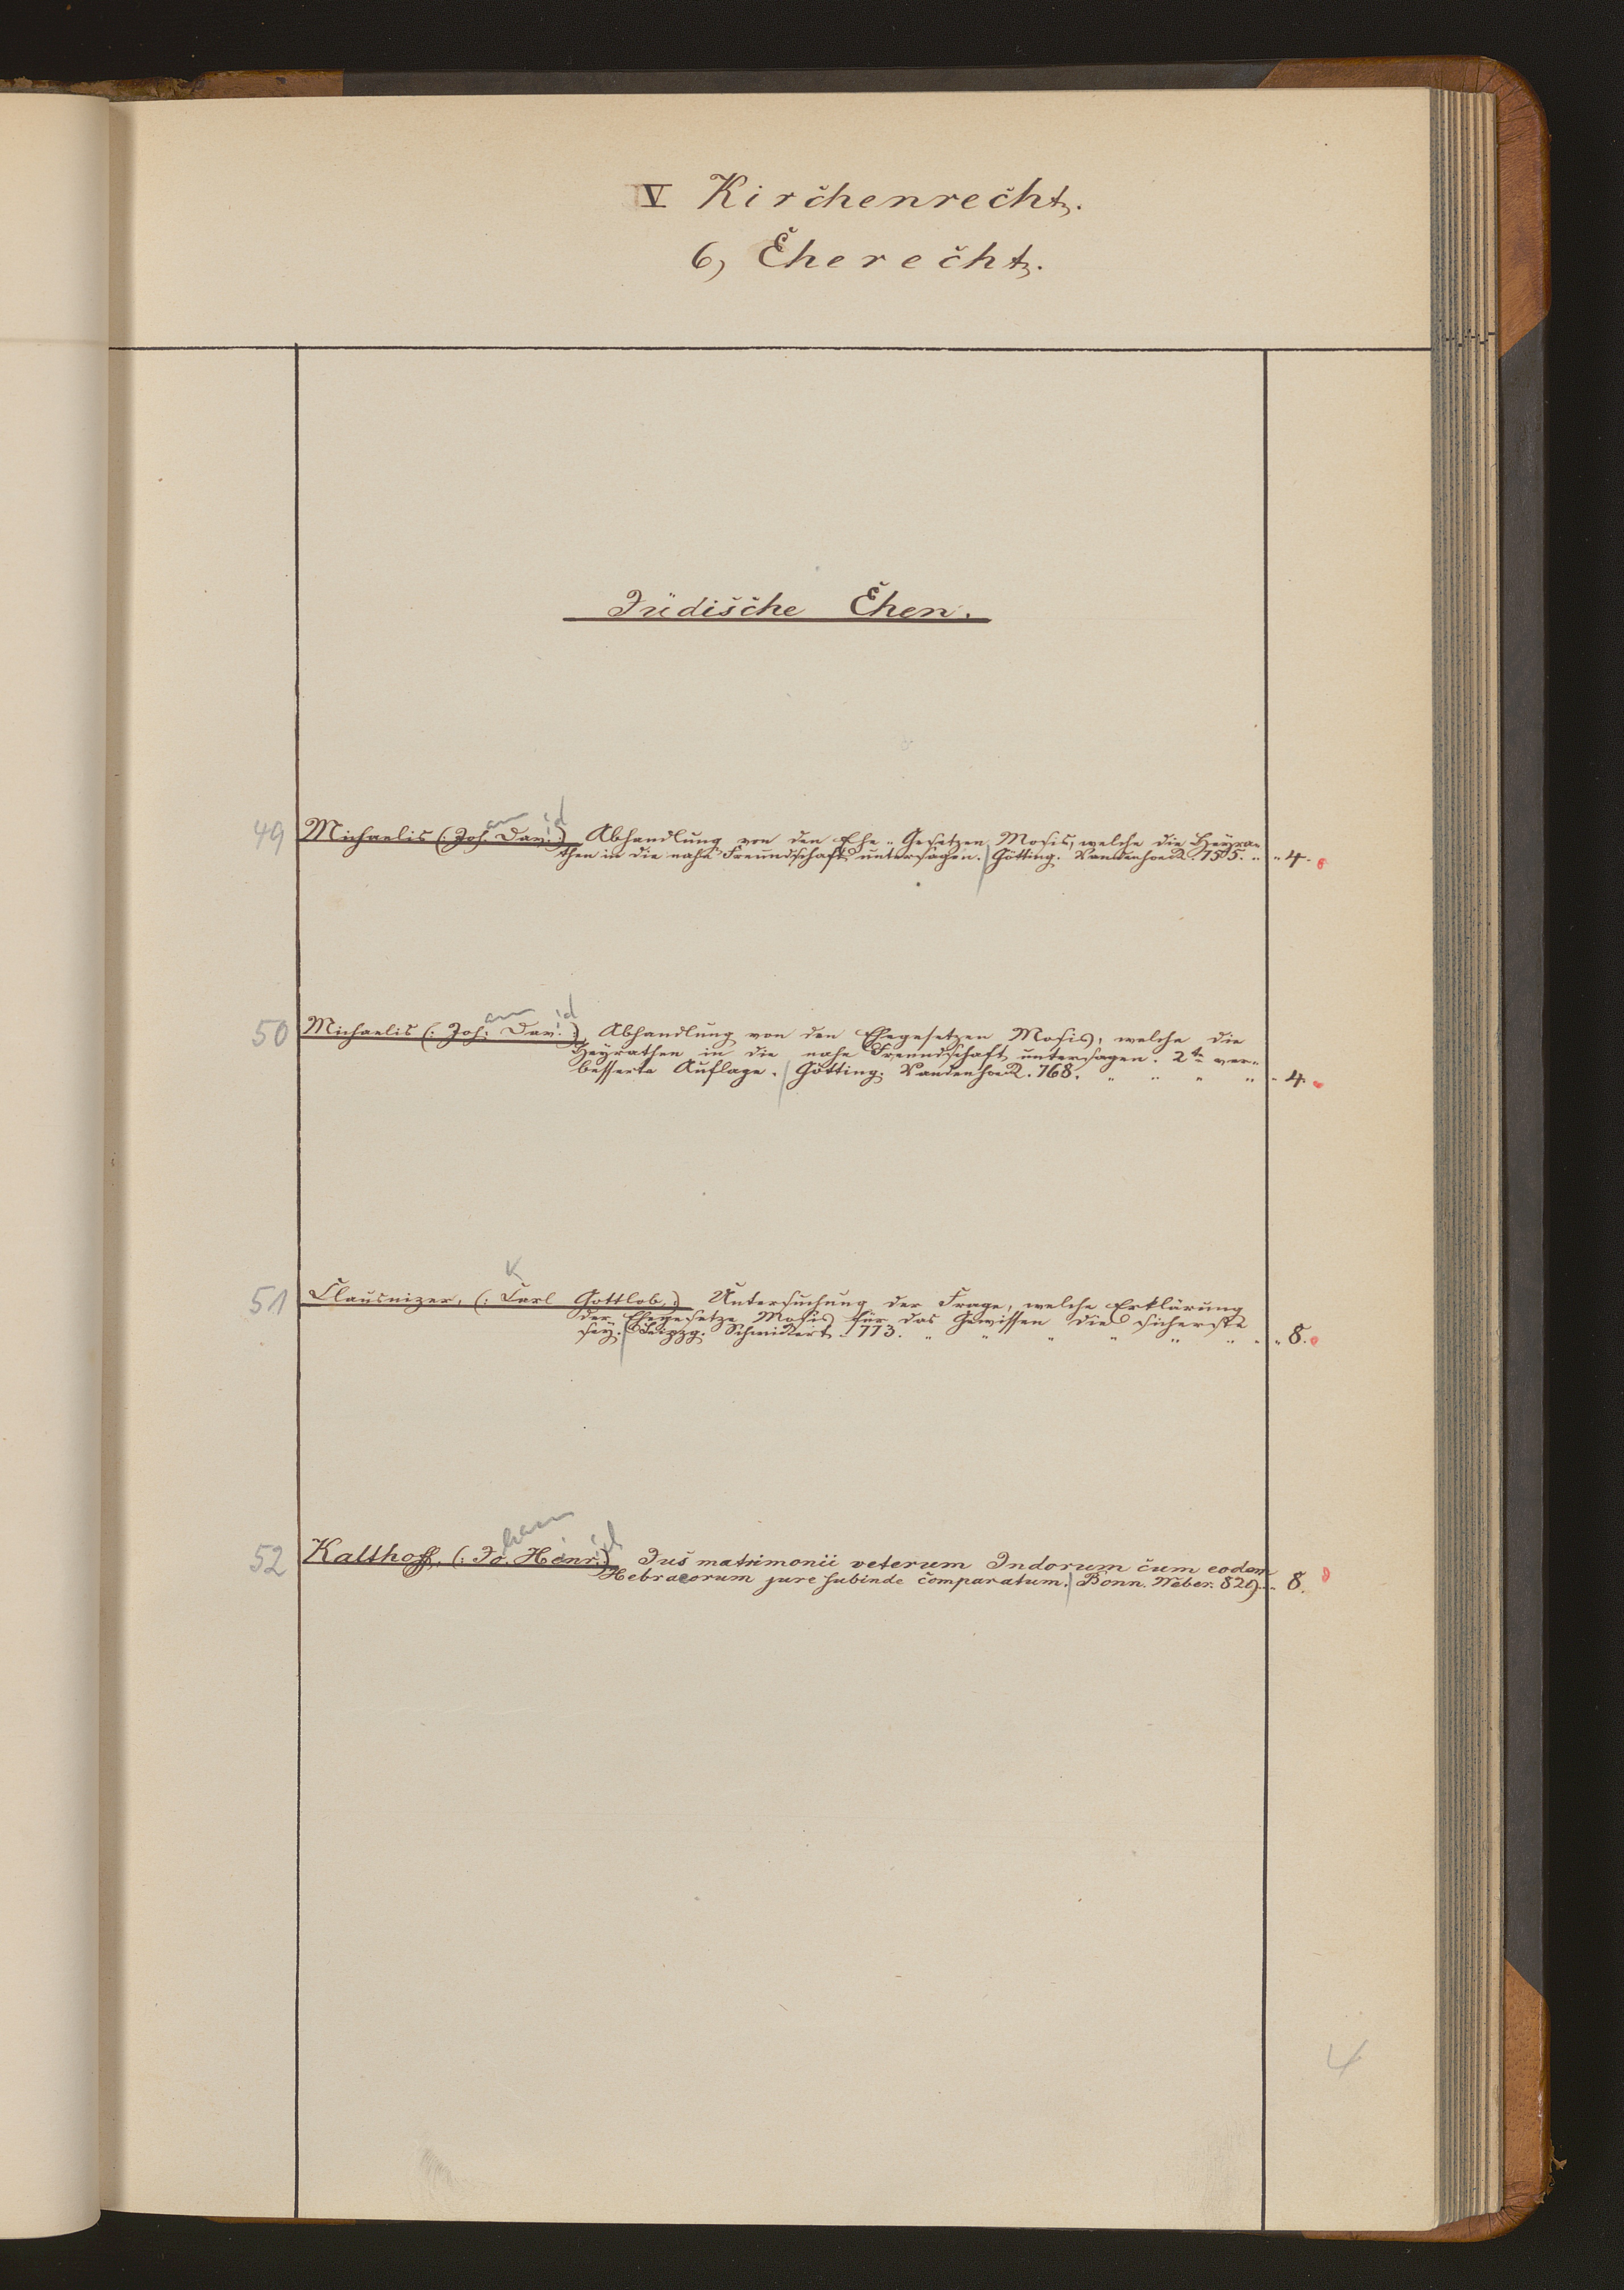 V Kirchenrecht.
6, Eherecht.
Jüdische Ehen.
49 Michaelis (: Joh. Dav. :) Abhandlung von den Ehe-Gesetzen Mosis, welche die Heyra-
then in die nahe Freundschaft untersagen. Götting. Vandenhoeck 755. 4.
50 Michaelis (: Joh. Dav. :) Abhandlung von den Ehegesetzen Mosis, welche die
Heyrathen in die nahe Freundschaft untersagen. 2te ver-
besserte Auflage. Götting. Vandenhoeck. 768. 4.
51 Clausnizer, (: Carl Gottlob, :) Untersuchung der Frage, welche Erklärung
der Ehegesetze Mosis für das Gewissen die sicherste
sey. Leipzg. Schwickert. 773. 8.
52 Kalthoff, (: Jo. Henr. :) Jus matrimonii veterum Indorum cum eodem
Hebraeorum jure subinde comparatum. Bonn. Weber. 829. 8.
4